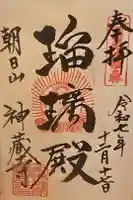 奉拝
令和七年
十二月十二日
瑠璃殿
朝日山
神蔵寺